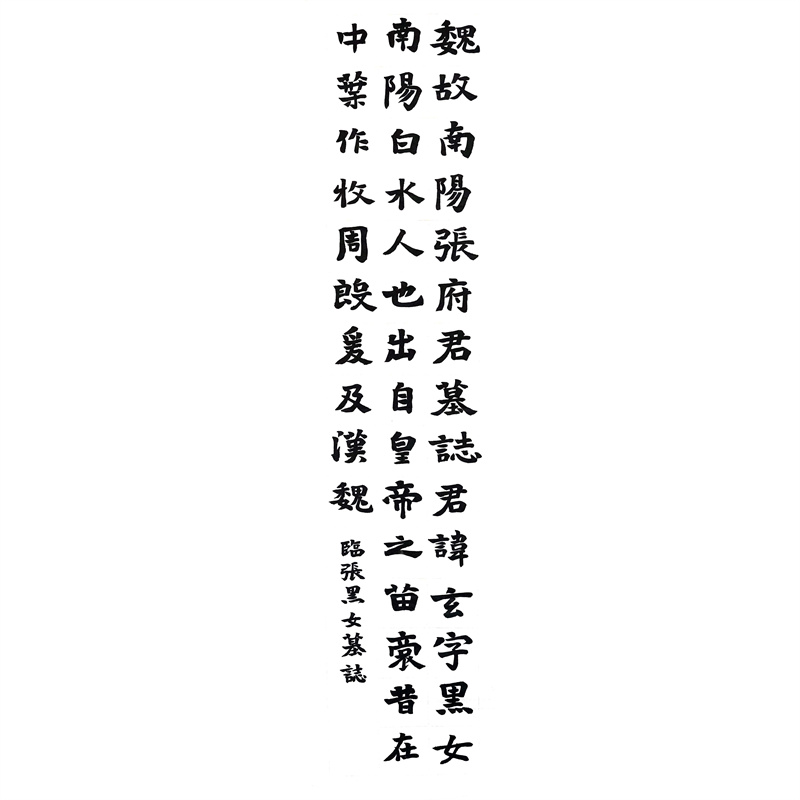 魏故南陽張府君墓誌君諱玄字黑女
南陽白水人也出自皇帝之苗裔昔在
中葉作牧周殷爰及漢魏
臨張黑女墓誌